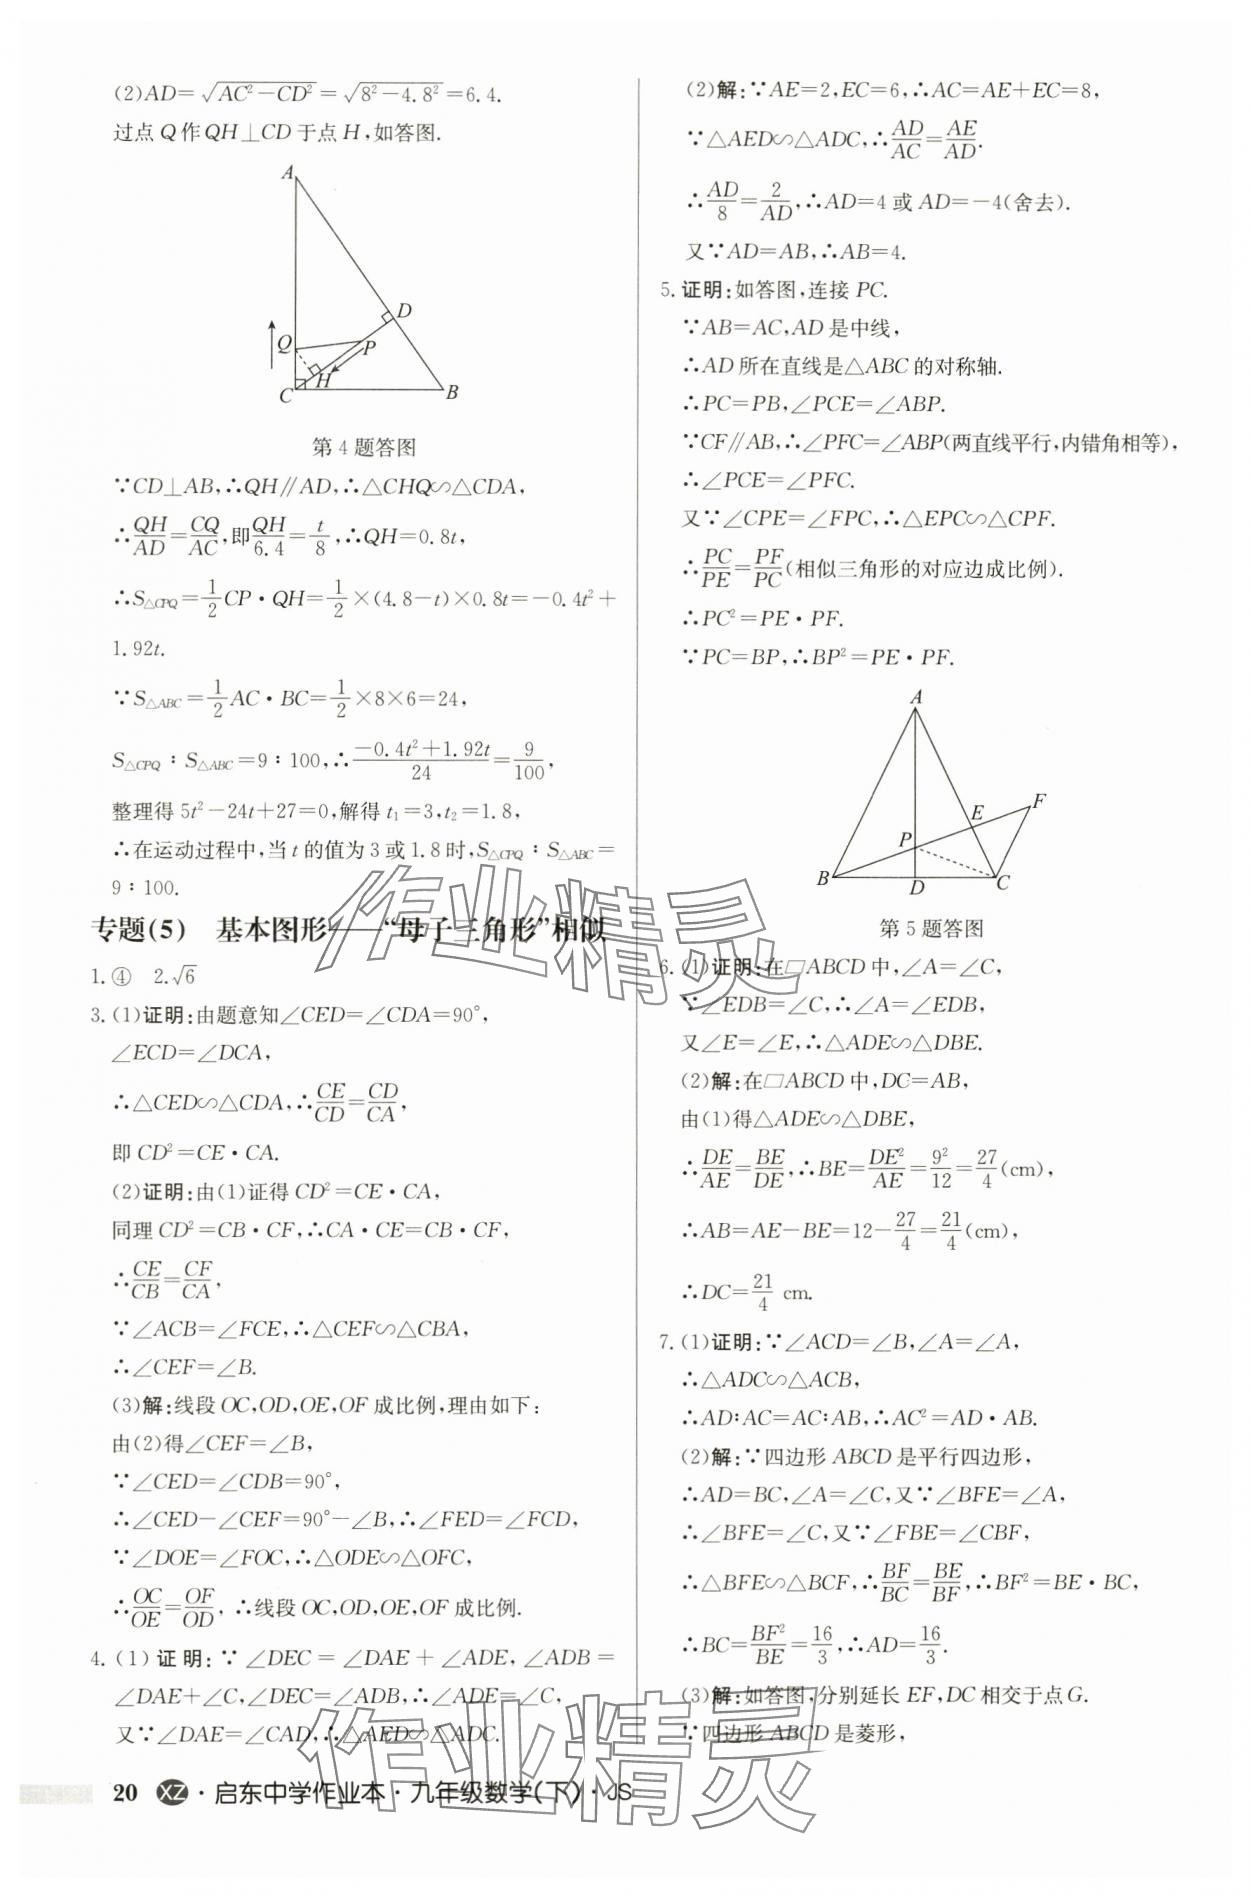 (2)AD=√(AC²-CD²)=√(8²-4.8²)=6.4.
过点Q作QH⊥CD于点H,如答图.
A
D
Q
P
H
C
B
第4题答图
∵CD⊥AB,∴QH∥AD,∴△CHQ∽△CDA,
∴QH/AD=CQ/AC,即QH/6.4=t/8,∴QH=0.8t,
∴S△CPQ=1/2CP·QH=1/2×(4.8-t)×0.8t=-0.4t²+
1.92t.
∵S△ABC=1/2AC·BC=1/2×8×6=24,
S△CPQ∶S△ABC=9∶100,∴(-0.4t²+1.92t)/24=9/100,
整理得5t²-24t+27=0,解得t₁=3,t₂=1.8,
∴在运动过程中,当t的值为3或1.8时,S△CPQ∶S△ABC=
9∶100.
专题(5) 基本图形——“母子三角形”相似
1.④ 2.√6
3.(1)证明:由题意知∠CED=∠CDA=90°,
∠ECD=∠DCA,
∴△CED∽△CDA,∴CE/CD=CD/CA,
即CD²=CE·CA.
(2)证明:由(1)证得CD²=CE·CA,
同理CD²=CB·CF,∴CA·CE=CB·CF,
∴CE/CB=CF/CA,
∵∠ACB=∠FCE,∴△CEF∽△CBA,
∴∠CEF=∠B.
(3)解:线段OC,OD,OE,OF成比例,理由如下:
由(2)得∠CEF=∠B,
∵∠CED=∠CDB=90°,
∴∠CED-∠CEF=90°-∠B,∴∠FED=∠FCD,
∵∠DOE=∠FOC,∴△ODE∽△OFC,
∴OC/OE=OF/OD,∴线段OC,OD,OE,OF成比例.
4.(1)证明:∵∠DEC=∠DAE+∠ADE,∠ADB=
∠DAE+∠C,∠DEC=∠ADB,∴∠ADE=∠C,
又∵∠DAE=∠CAD,∴△AED∽△ADC.
(2)解:∵AE=2,EC=6,∴AC=AE+EC=8,
∵△AED∽△ADC,∴AD/AC=AE/AD.
∴AD/8=2/AD,∴AD=4或AD=-4(舍去).
又∵AD=AB,∴AB=4.
5.证明:如答图,连接PC.
∵AB=AC,AD是中线,
∴AD所在直线是△ABC的对称轴.
∴PC=PB,∠PCE=∠ABP.
∵CF∥AB,∴∠PFC=∠ABP(两直线平行,内错角相等),
∴∠PCE=∠PFC.
又∵∠CPE=∠FPC,∴△EPC∽△CPF.
∴PC/PE=PF/PC(相似三角形的对应边成比例).
∴PC²=PE·PF.
∵PC=BP,∴BP²=PE·PF.
A
E
F
P
B
D
C
第5题答图
6.(1)证明:在▱ABCD中,∠A=∠C,
∵∠EDB=∠C,∴∠A=∠EDB,
又∠E=∠E,∴△ADE∽△DBE.
(2)解:在▱ABCD中,DC=AB,
由(1)得△ADE∽△DBE,
∴DE/AE=BE/DE,∴BE=DE²/AE=9²/12=27/4(cm),
∴AB=AE-BE=12-27/4=21/4(cm),
∴DC=21/4 cm.
7.(1)证明:∵∠ACD=∠B,∠A=∠A,
∴△ADC∽△ACB,
∴AD∶AC=AC∶AB,∴AC²=AD·AB.
(2)解:∵四边形ABCD是平行四边形,
∴AD=BC,∠A=∠C,又∵∠BFE=∠A,
∴∠BFE=∠C,又∵∠FBE=∠CBF,
∴△BFE∽△BCF,∴BF/BC=BE/BF,∴BF²=BE·BC,
∴BC=BF²/BE=16/3,∴AD=16/3.
(3)解:如答图,分别延长EF,DC相交于点G.
∵四边形ABCD是菱形,
20 XZ·启东中学作业本·九年级数学(下)·JS
作业精灵
作业精灵